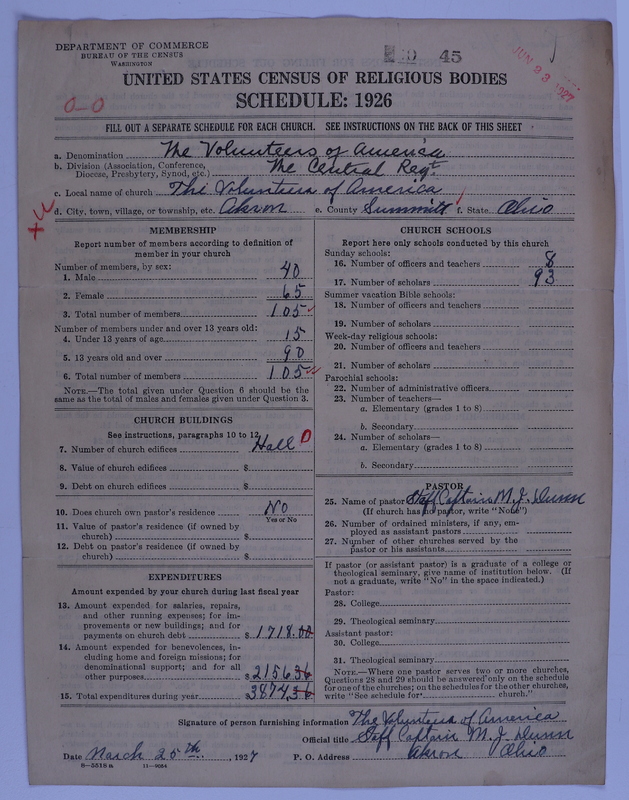 DEPARTMENT OF COMMERCE
BUREAU OF THE CENSUS
WASHINGTON
45
JUN 23 1927
UNITED STATES CENSUS OF RELIGIOUS BODIES
0-0
SCHEDULE: 1926
FILL OUT A SEPARATE SCHEDULE FOR EACH CHURCH. SEE INSTRUCTIONS ON THE BACK OF THIS SHEET
a. Denomination The Volunteers of America
b. Division (Association, Conference, Diocese, Presbytery, Synod, etc.) The Central Regt.
c. Local name of church The Volunteers of America
d. City, town, village, or township, etc. Akron e. County Summitt f. State Ohio
MEMBERSHIP
Report number of members according to definition of
member in your church
Number of members, by sex:
1. Male 40
2. Female 65
3. Total number of members 105
Number of members under and over 13 years old:
4. Under 13 years of age 15
5. 13 years old and over 90
6. Total number of members 105
NOTE.—The total given under Question 6 should be the
same as the total of males and females given under Question 3.
CHURCH BUILDINGS
See instructions, paragraphs 10 to 12
7. Number of church edifices Hall 0
8. Value of church edifices $
9. Debt on church edifices $
10. Does church own pastor's residence No
Yes or No
11. Value of pastor's residence (if owned by
church) $
12. Debt on pastor's residence (if owned by
church) $
EXPENDITURES
Amount expended by your church during last fiscal year
13. Amount expended for salaries, repairs,
and other running expenses; for im-
provements or new buildings; and for
payments on church debt $ 1718.00
14. Amount expended for benevolences, in-
cluding home and foreign missions; for
denominational support; and for all
other purposes $ 2156 36
15. Total expenditures during year $ 3874,36
CHURCH SCHOOLS
Report here only schools conducted by this church
Sunday schools:
16. Number of officers and teachers 8
17. Number of scholars 93
Summer vacation Bible schools:
18. Number of officers and teachers
19. Number of scholars
Week-day religious schools:
20. Number of officers and teachers
21. Number of scholars
Parochial schools:
22. Number of administrative officers
23. Number of teachers—
a. Elementary (grades 1 to 8)
b. Secondary
24. Number of scholars—
a. Elementary (grades 1 to 8)
b. Secondary
PASTOR
25. Name of pastor Staff Captain M. J. Dunn
(If church has no pastor, write "None")
26. Number of ordained ministers, if any, em-
ployed as assistant pastors
27. Number of other churches served by the
pastor or his assistants
If pastor (or assistant pastor) is a graduate of a college or
theological seminary, give name of institution below. (If
not a graduate, write "No" in the space indicated.)
Pastor:
28. College
29. Theological seminary
Assistant pastor:
30. College
31. Theological seminary
NOTE.—Where one pastor serves two or more churches,
Questions 28 and 29 should be answered only on the schedule
for one of the churches; on the schedules for the other churches,
write "See schedule for church."
Signature of person furnishing information The Volunteers of America
Official title Staff Captain M. J. Dunn
Date March 25th, 1927 P. O. Address Akron Ohio
8—5518a 11—9084